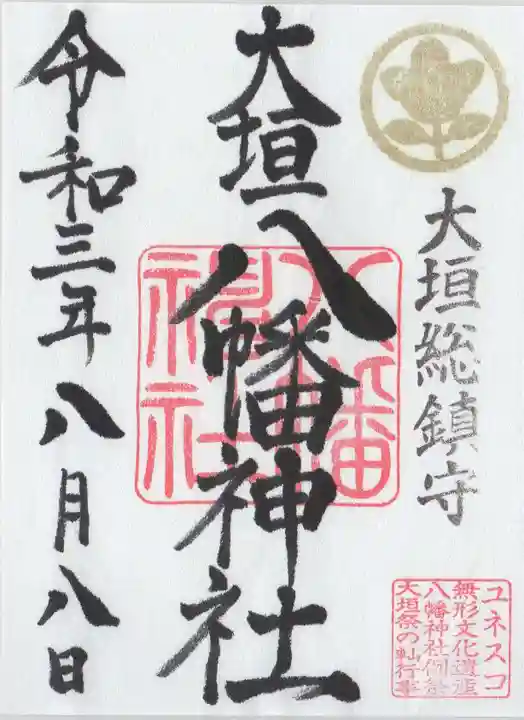 大垣総鎮守
大垣八幡神社
令和三年八月八日
八幡
神社
ユネスコ
無形文化遺産
八幡神社例祭
大垣祭の軕行事